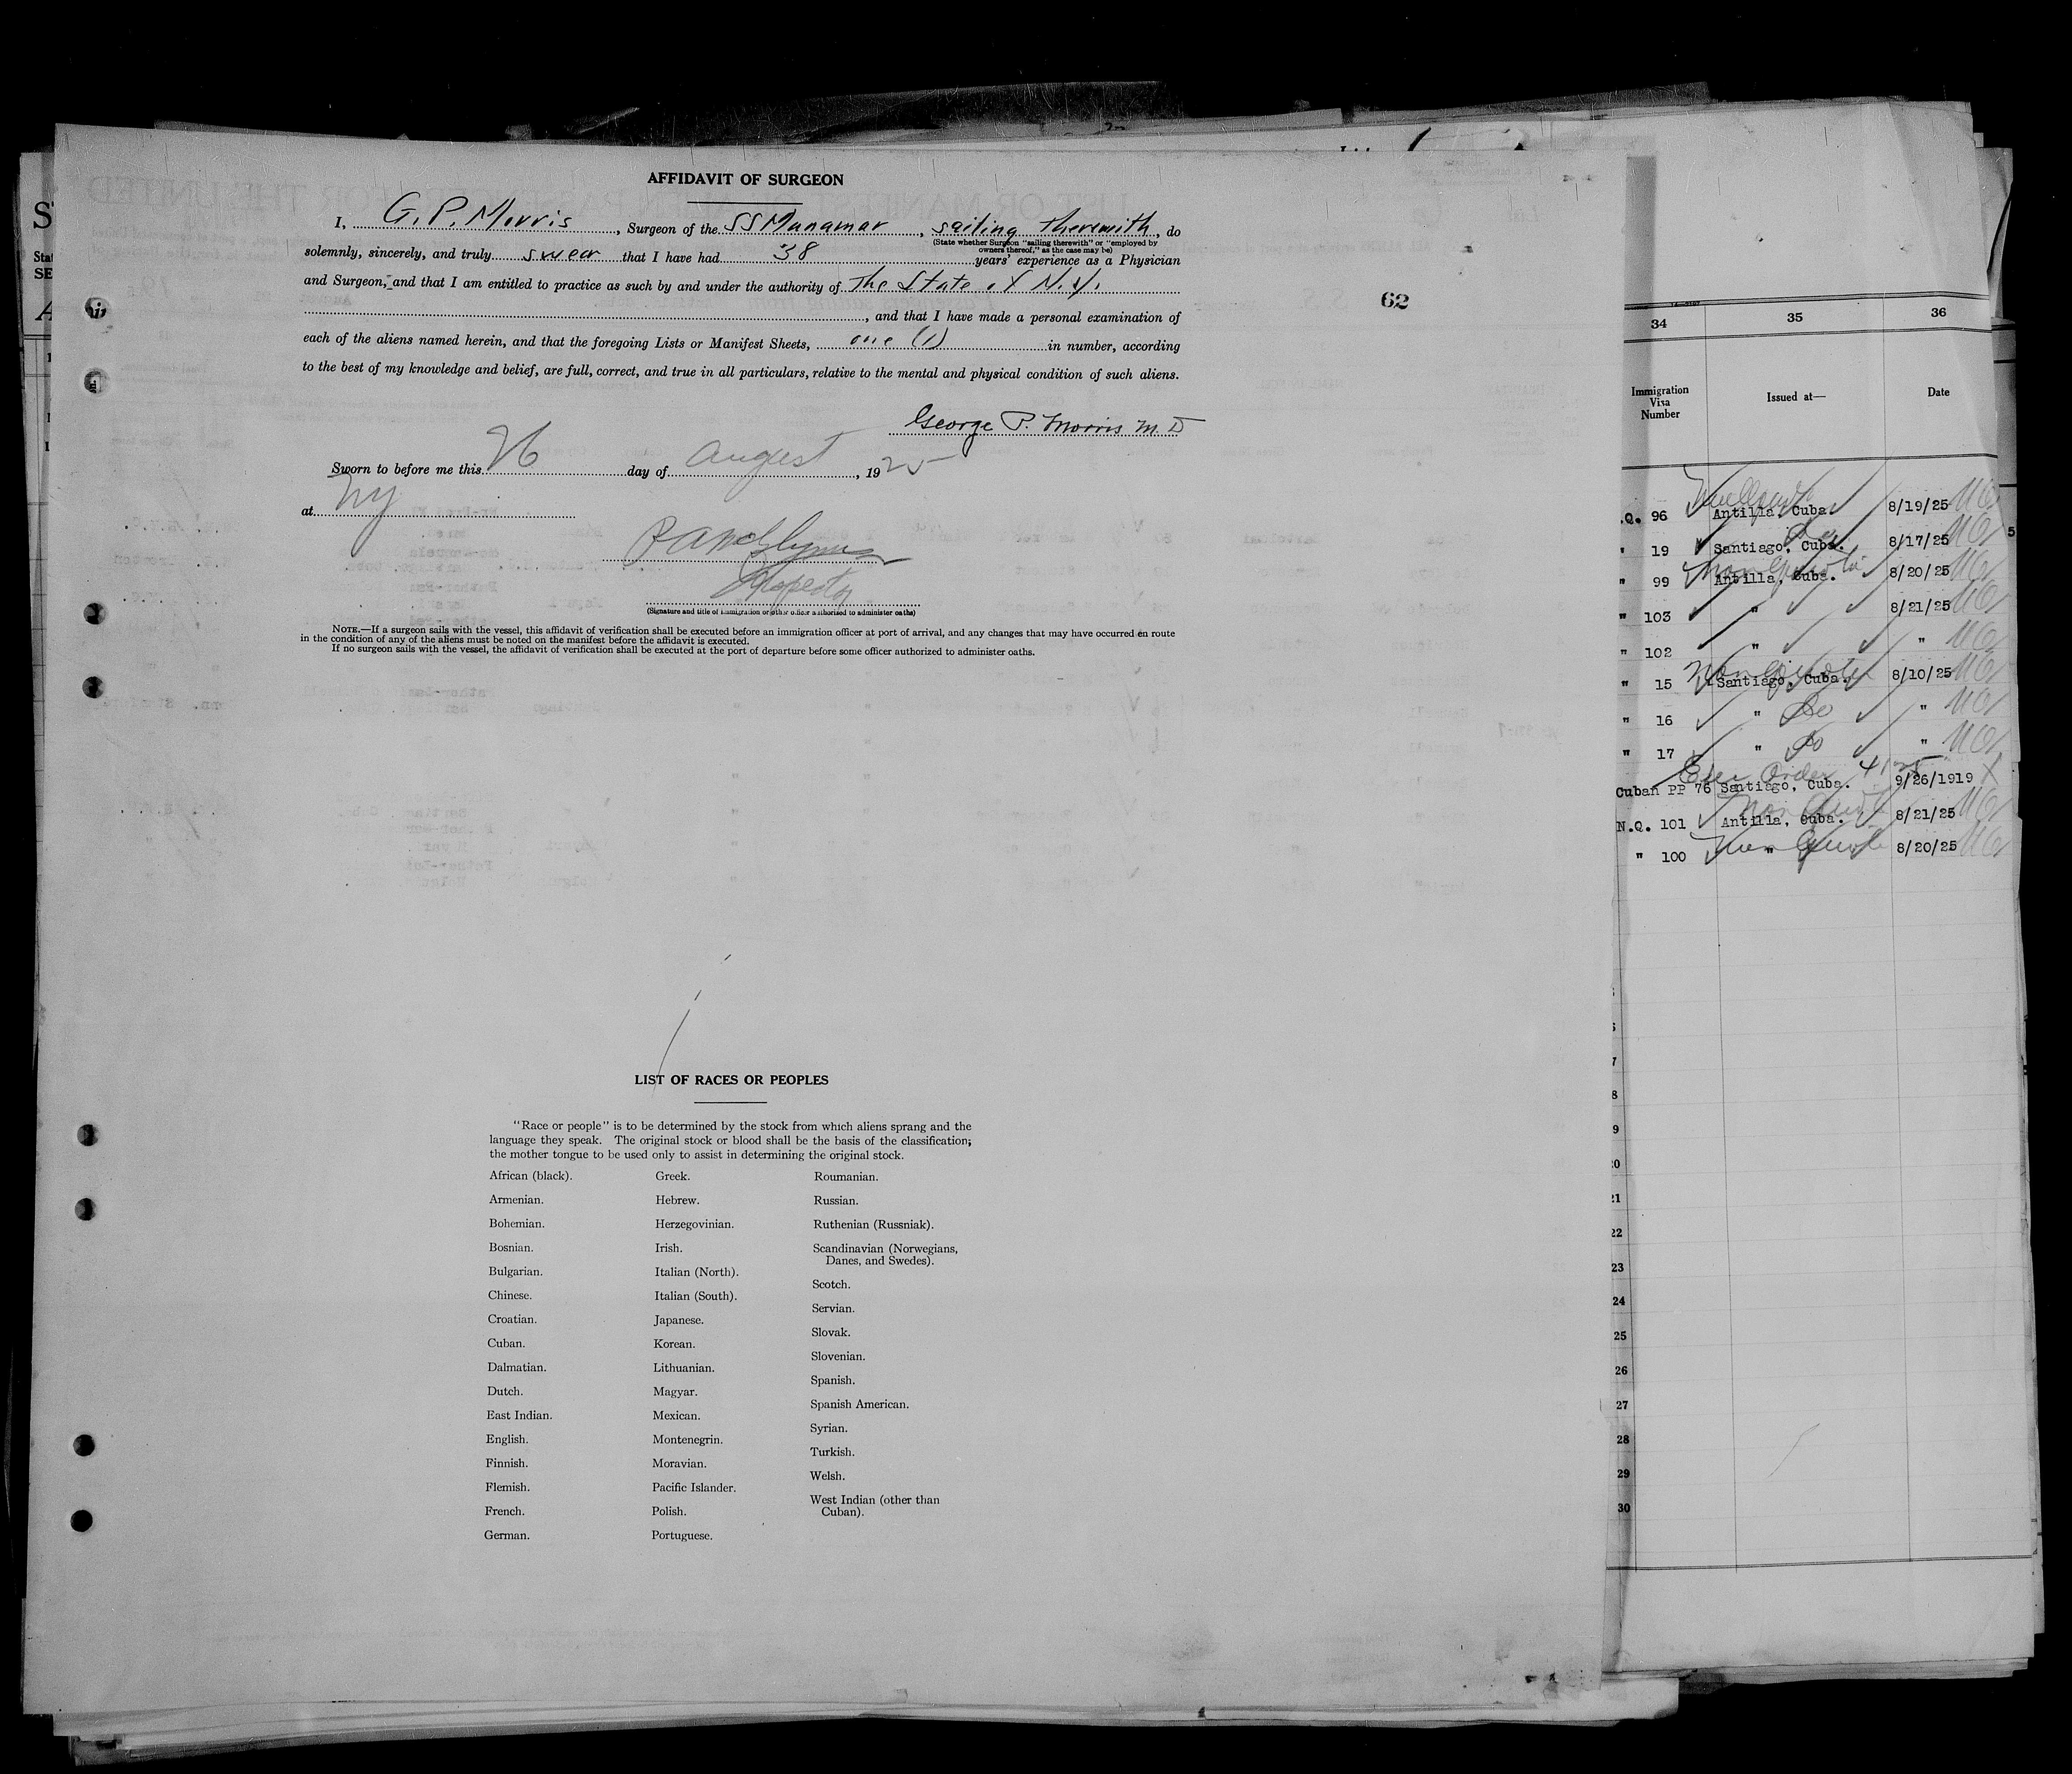 AFFIDAVIT OF SURGEON
I, G. P. Morris, Surgeon of the SS Munamar, sailing therewith, do
(State whether Surgeon "sailing therewith" or "employed by
owners thereof," as the case may be)
solemnly, sincerely, and truly swear that I have had 38 years' experience as a Physician
and Surgeon, and that I am entitled to practice as such by and under the authority of The State of N.Y.
, and that I have made a personal examination of
each of the aliens named herein, and that the foregoing Lists or Manifest Sheets, one (1) in number, according
to the best of my knowledge and belief, are full, correct, and true in all particulars, relative to the mental and physical condition of such aliens.
George P. Morris M.D
Sworn to before me this 26 day of August, 1925
at NY
Inspector
(Signature and title of immigration or other officer authorized to administer oaths)
NOTE.—If a surgeon sails with the vessel, this affidavit of verification shall be executed before an immigration officer at port of arrival, and any changes that may have occurred en route
in the condition of any of the aliens must be noted on the manifest before the affidavit is executed.
If no surgeon sails with the vessel, the affidavit of verification shall be executed at the port of departure before some officer authorized to administer oaths.
62
LIST OF RACES OR PEOPLES
"Race or people" is to be determined by the stock from which aliens sprang and the
language they speak. The original stock or blood shall be the basis of the classification;
the mother tongue to be used only to assist in determining the original stock.
African (black).
Armenian.
Bohemian.
Bosnian.
Bulgarian.
Chinese.
Croatian.
Cuban.
Dalmatian.
Dutch.
East Indian.
English.
Finnish.
Flemish.
French.
German.
Greek.
Hebrew.
Herzegovinian.
Irish.
Italian (North).
Italian (South).
Japanese.
Korean.
Lithuanian.
Magyar.
Mexican.
Montenegrin.
Moravian.
Pacific Islander.
Polish.
Portuguese.
Roumanian.
Russian.
Ruthenian (Russniak).
Scandinavian (Norwegians,
Danes, and Swedes).
Scotch.
Servian.
Slovak.
Slovenian.
Spanish.
Spanish American.
Syrian.
Turkish.
Welsh.
West Indian (other than
Cuban).
34 35 36
Immigration
Visa
Number
Issued at—
Date
.Q. 96 Antilla, Cuba. 8/19/25
" 19 Santiago, Cuba. 8/17/25
Non Quota
" 99 Antilla, Cuba. 8/20/25
" 103 " 8/21/25
" 102 " "
Non Quota
" 15 Santiago, Cuba. 8/10/25
" 16 " Do "
" 17 " Do "
Exec Order
Cuban PP 76 Santiago, Cuba. 9/26/1919
Non Quota
N.Q. 101 Antilla, Cuba. 8/21/25
Non Quota
" 100 " 8/20/25
22
23
24
25
26
27
28
29
30